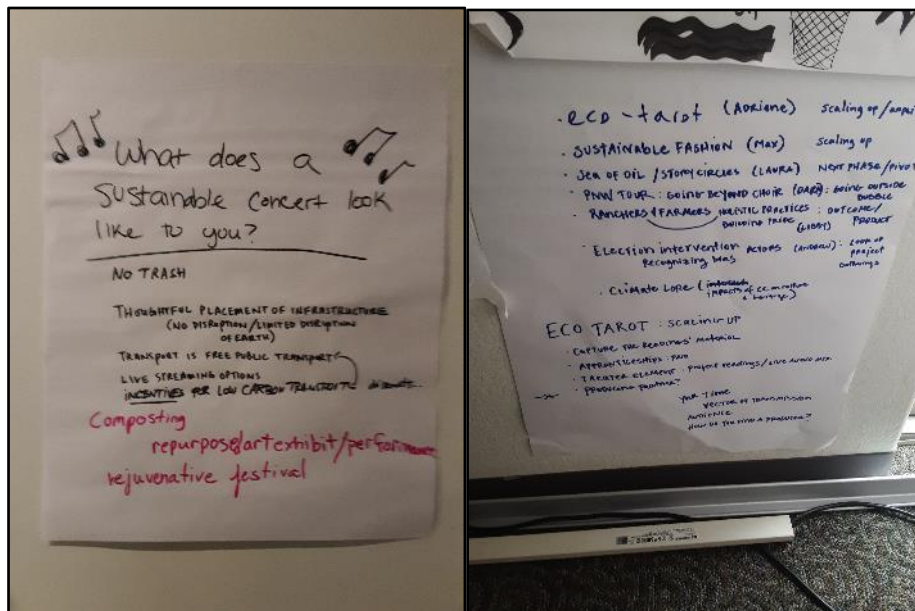 What does a
Sustainable Concert look
like to you?
NO TRASH
THOUGHTFUL PLACEMENT OF INFRASTRUCTURE
(NO DISRUPTION/LIMITED DISRUPTION
OF EARTH)
TRANSPORT IS FREE PUBLIC TRANSPORT
LIVE STREAMING OPTIONS
INCENTIVES FOR LOW CARBON
Composting
repurpose/art exhibit/performance
rejuvenative festival
· eco-tarot (ADRIANE) scaling up/
· SUSTAINABLE FASHION (MAX) scaling up
· SEA OF OIL / STORY CIRCLES (LAURA) NEXT PHASE/PIVOT
· PNW TOUR: GOING BEYOND CHOIR (DARA): GOING OUTSIDE
BUBBLE
· RANCHERS & FARMERS HOLISTIC PRACTICES : OUTCOME/
BUILDING PRIDE (LIBBY) PRODUCT
· Election intervention ACTORS (ANDREW): LOOK AT
Recognizing bias PROJECT
· CLIMATE LORE (
IMPACTS of CC on culture
& heritage)
ECO TAROT: SCALING UP
· CAPTURE THE READINGS' MATERIAL
· APPRENTICESHIPS: PAID
· THEATER ELEMENT: project readings/Live
· PRODUCING PARTNER?
YOUR TIME
VECTOR OF TRANSMISSION
AUDIENCE
HOW DO YOU FIND A PRODUCER?